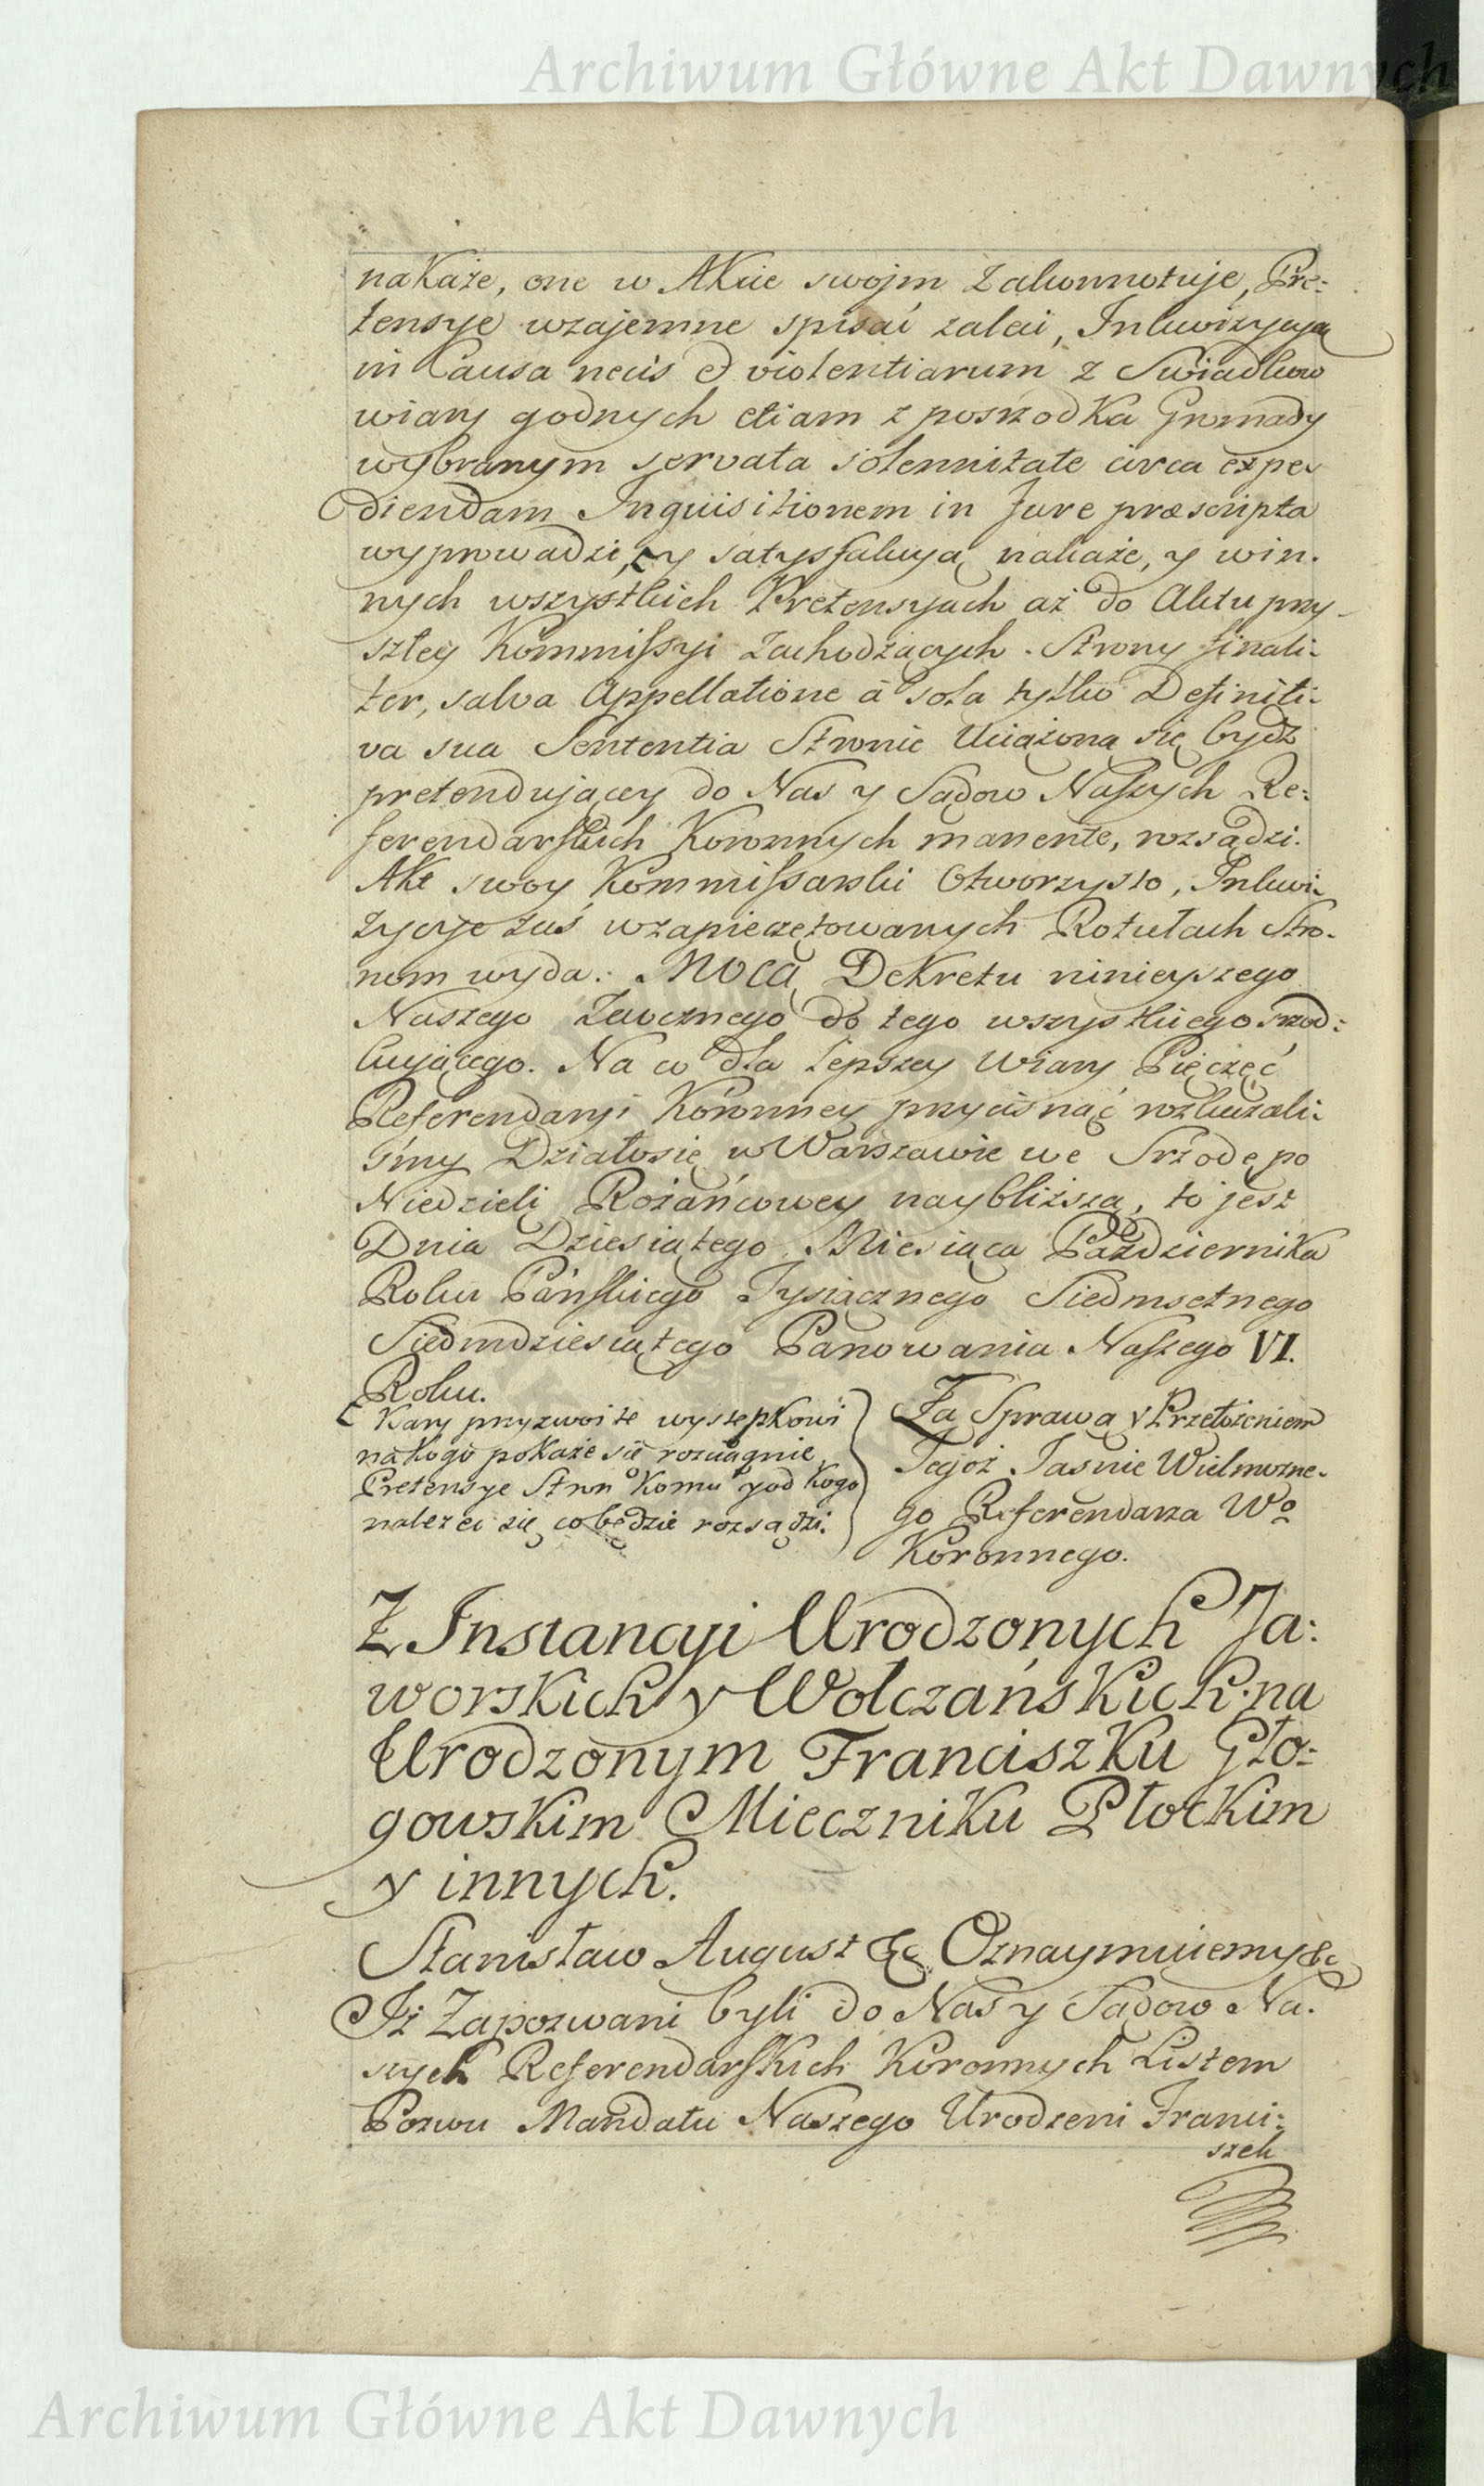 Archiwum Główne Akt Dawnych
nakaże, one w Akcie swojm zakonnotuje, Pre:
tensye wzajemne spisać zaleci, Inkwizycyą
in Causa necis & violentiarum z Swiadkow
wiary godnych etiam z poszrodka Gromady
wybranym servata solennitate circa expe
diendam Inquisitionem in Jure præscripta
wyprowadzi, y satysfakcyą nakaże, y win.
nych wszystkich Pretensyach aż do Aktu przy-
szłey Kommissyi zachodzących. Strony finali:
ter, salva Appellatione à sola tylko Definiti:
va sua Sententia Stronie Uciążoną się bydź
pretendującey do Nas y Sądow Naszych Re:
ferendarskich Koronnych manente, rozsądzi.
Akt swoy Kommissarski Otworzysto, Inkwi-
zycye zaś wzapieczętowanych Rotułach Stro-
nom wyda: Mocą Dekretu ninieyszego
Naszego Zaocznego do tego wszystkiego srzod:
kującego. Na co dla lepszey Wiary Pieczęć
Referendaryi Koronney przycisnąć rozkazali:
śmy Działosię w Warszawie we Srzodę po
Niedzieli Rożańcowey naybliższą, to jest
Dnia Dziesiątego Miesiąca Października
Roku Pańskiego Tysiącznego Siedmsetnego
Siedmdziesiątego Panowania Naszego VI.
Roku.
Kary przyzwoite występkowi
na kogo pokaże się rozciągnie
Pretensye Stron komu y od kogo
należeć się co będzie rozsądzi.
Za Sprawą y Przełożeniem
Tegoż Jasnie Wielmożne-
go Referendarza Wo
Koronnego.
Z Instancyi Urodzonych Ja:
worskich y Wolczańskich na
Urodzonym Franciszku Gło:
gowskim Mieczniku Płockim
y innych.
Stanisław August &c Oznaymuiemy &c
Iż Zapozwani byli do Nas y Sądow Na.
szych Referendarskich Koronnych Listem
Pozwu Mandatu Naszego Urodzeni Franci:
szek
Archiwum Główne Akt Dawnych